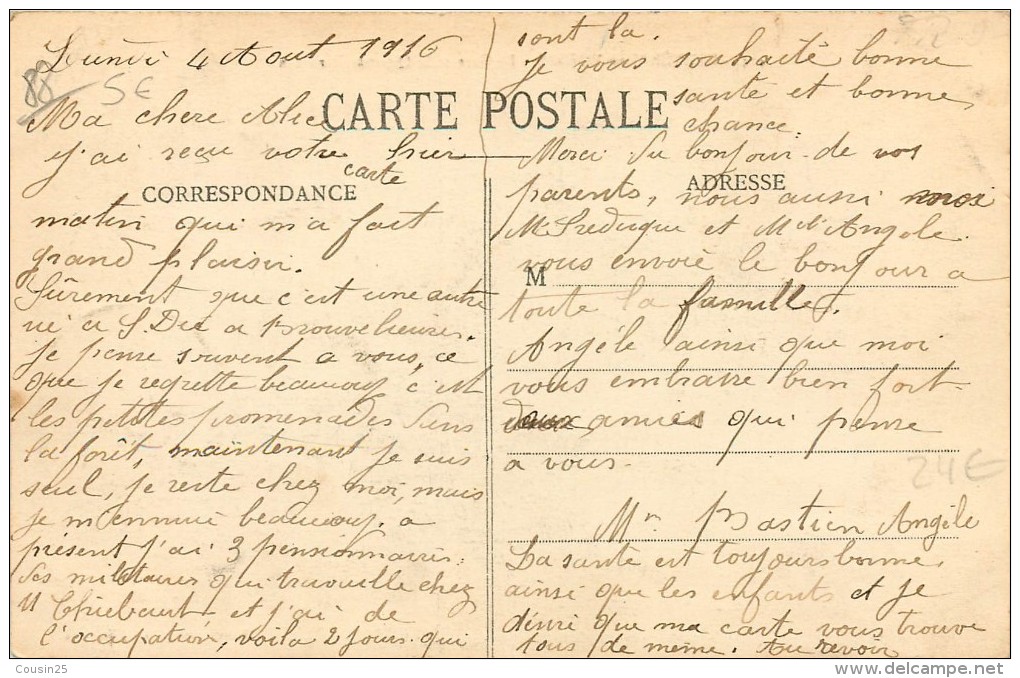 Lundi 4 Aout 1916
88
5€
Ma chere Alice
CARTE POSTALE
j'ai reçu votre carte hier
CORRESPONDANCE
matin qui m'a fait
grand plaisir.
Sûrement que c'est une autre
vie a S. Die a Brouvelieures.
Je pense souvent a vous, ce
que je regrette beaucoup c'est
les petites promenades dans
la forêt, maintenant je suis
seul, je reste chez moi, mais
je m'ennuie beaucoup. a
présent j'ai 3 pensionnaires.
des militaires qui travaille chez
M Thiebaut et j'ai de
l'occupation, voila 2 jours qui
sont la.
Je vous souhaite bonne
santé et bonne
chance.
Merci du bonjour de vos
ADRESSE
parents, nous aussi moi
M et M d'Angele
M
vous envoie le bonjour a
toute la famille.
Angéle ainsi que moi
vous embrasse bien fort
deux amies qui pense
a vous.
24€
Mm Bastien Angéle
La santé est toujours bonne,
ainsi que les enfants et je
désire que ma carte vous trouve
tous de meme. Au revoir
Cousin25